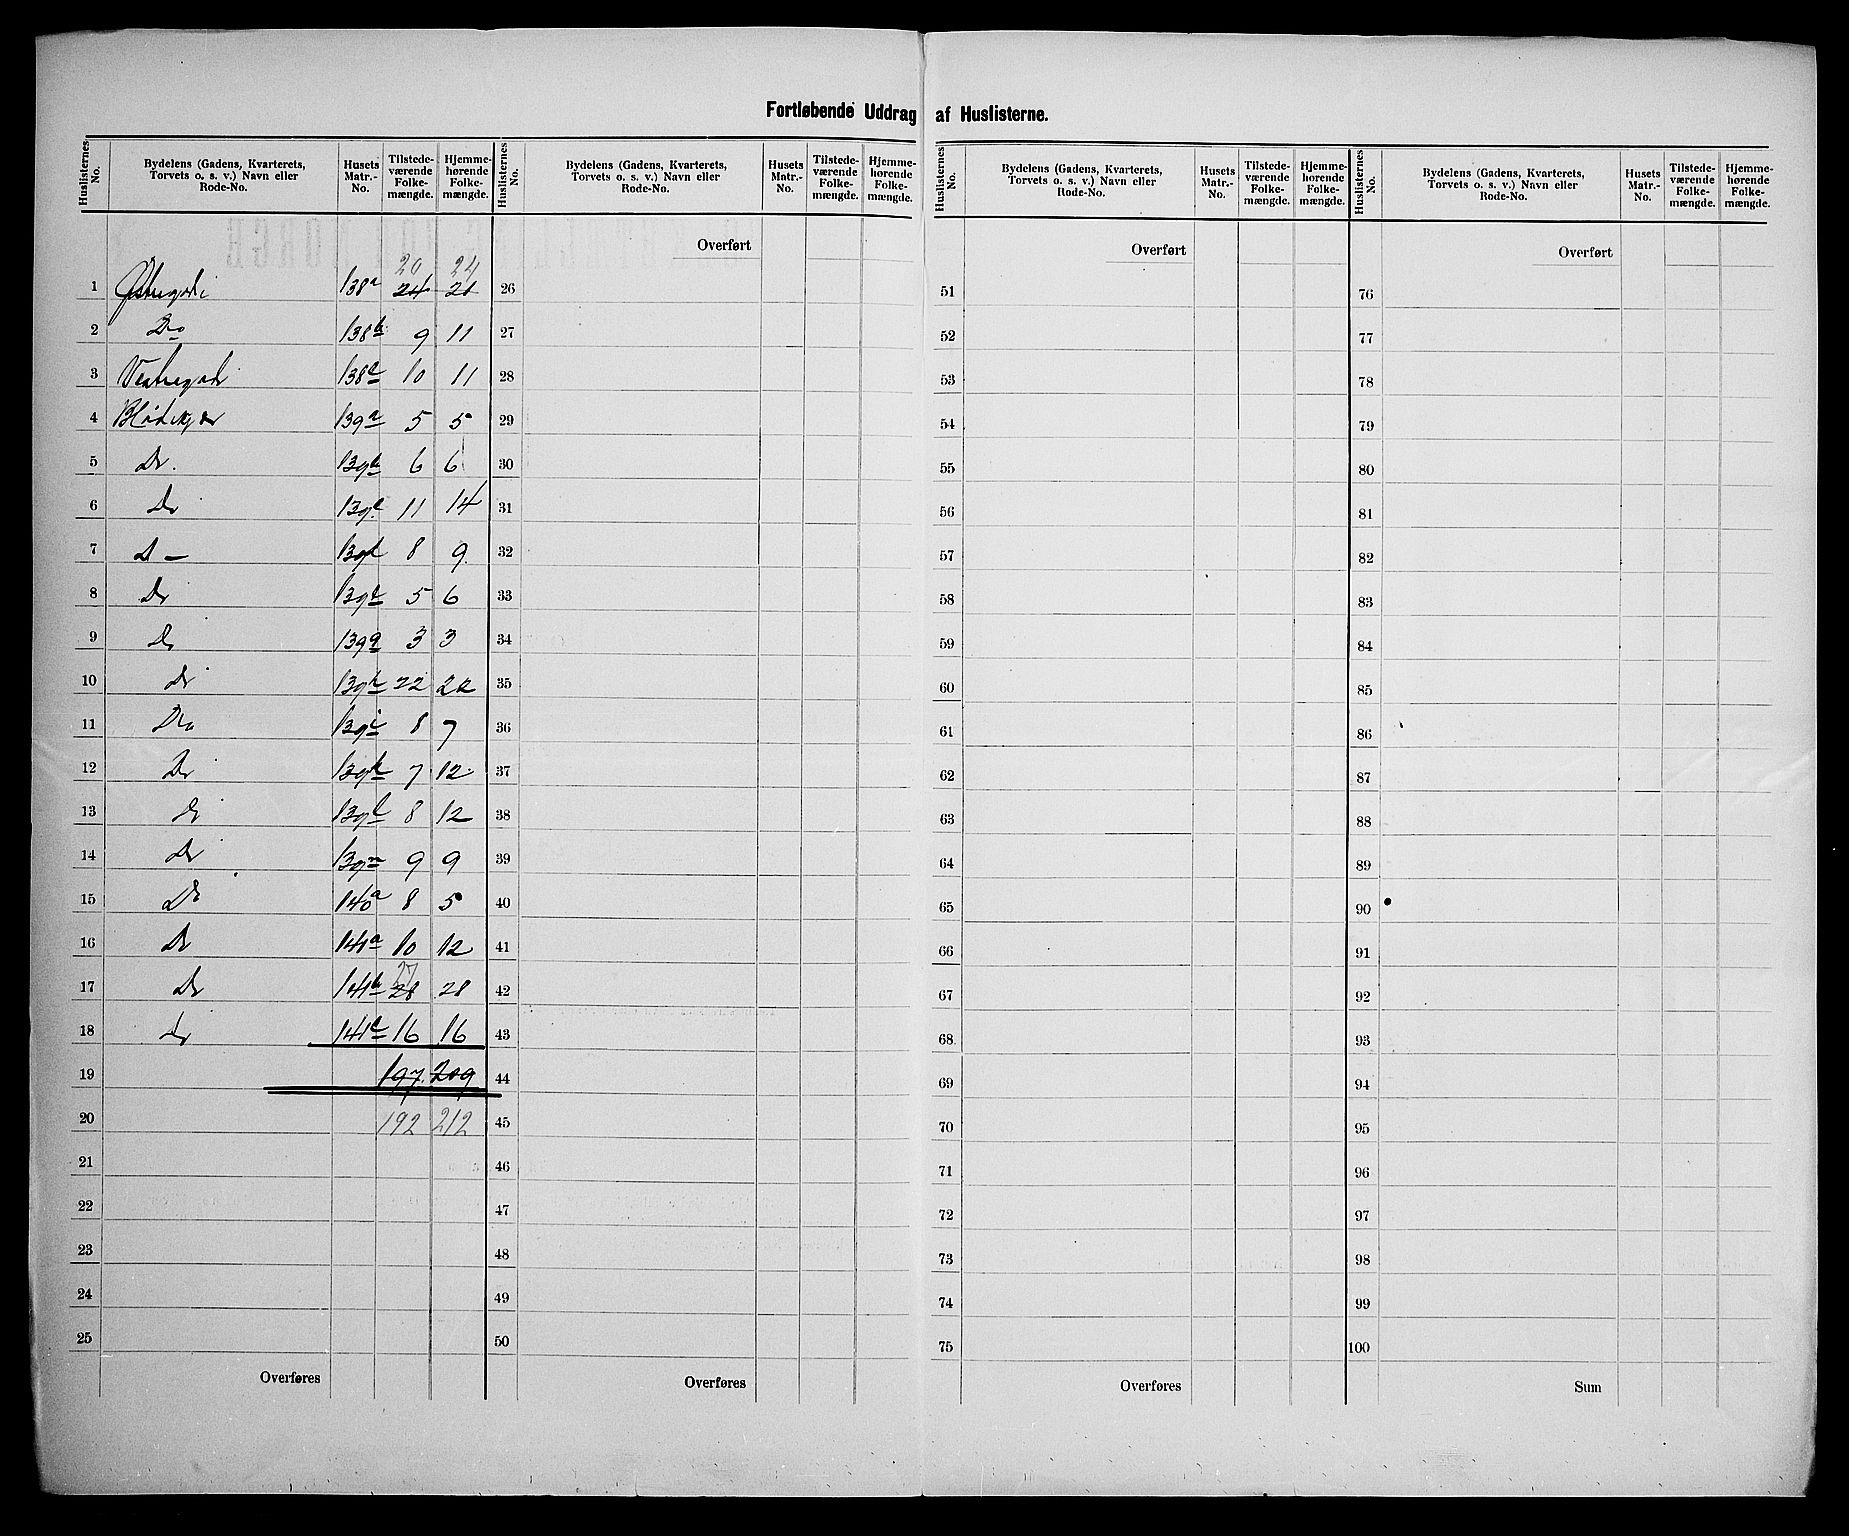 Fortløbende Uddrag af Huslisterne.
Huslisternes No. | Bydelens (Gadens, Kvarterets, Torvets o. s. v.) Navn eller Rode-No. | Husets Matr.-No. | Tilstede-værende Folke-mængde. | Hjemme-hørende Folke-mængde. | Huslisternes No. | Bydelens (Gadens, Kvarterets, Torvets o. s. v.) Navn eller Rode-No. | Husets Matr.-No. | Tilstede-værende Folke-mængde. | Hjemme-hørende Folke-mængde. | Huslisternes No. | Bydelens (Gadens, Kvarterets, Torvets o. s. v.) Navn eller Rode-No. | Husets Matr.-No. | Tilstede-værende Folke-mængde. | Hjemme-hørende Folke-mængde. | Huslisternes No. | Bydelens (Gadens, Kvarterets, Torvets o. s. v.) Navn eller Rode-No. | Husets Matr.-No. | Tilstede-værende Folke-mængde. | Hjemme-hørende Folke-mængde.
Overført Overført Overført
20 24
1 Østregade 138a 24 26 51 76
2 Do 138b 9 11 27 52 77
3 Vestregade 138c 10 11 28 53 78
4 139a 5 5 29 54 79
5 Do. 139b 6 6 30 55 80
6 Do 139c 11 14 31 56 81
7 D – 139d 8 9 32 57 82
8 Do 139e 5 6 33 58 83
9 Do 139g 3 3 34 59 84
10 Do 139h 22 22 35 60 85
11 Do 139i 8 7 36 61 86
12 Do 139k 7 12 37 62 87
13 Do 139l 8 12 38 63 88
14 Do 139m 9 9 39 64 89
15 Do 140a 8 5 40 65 90
16 Do 141a 10 12 41 66 91
27
17 Do 141b 28 28 42 67 92
18 Do 141c 16 16 43 68 93
19 197 209 44 69 94
20 192 212 45 70 95
21 46 71 96
22 47 72 97
23 48 73 98
24 49 74 99
25 50 75 100
Overføres Overføres Overføres Sum